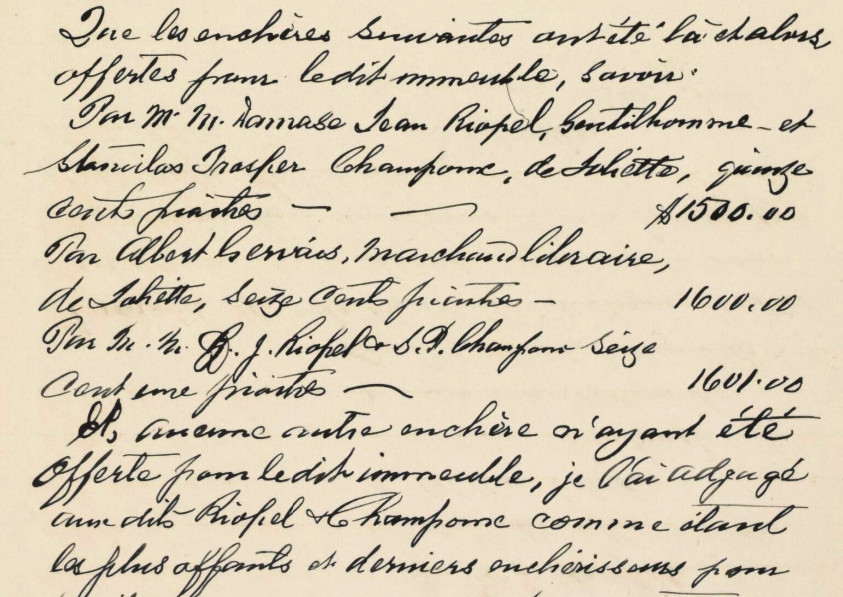 Que les enchères suivantes ont été là et alors
offertes pour ledit immeuble, savoir:
Par M. M. Damase Jean Riopel, Gentilhomme - et
Stanislas Prosper Champoux, de Joliette, quinze
cents piastres — — $1500.00
Par Albert Gervais, Marchand libraire,
de Joliette, seize cents piastres — 1600.00
Par M. M. D. J. Riopel & S. P. Champoux seize
cent une piastres — 1601.00
Et, aucune autre enchère n'ayant été
offerte pour ledit immeuble, je l'ai adjugé
aux dits Riopel & Champoux comme étant
les plus offrants et derniers enchérisseurs pour